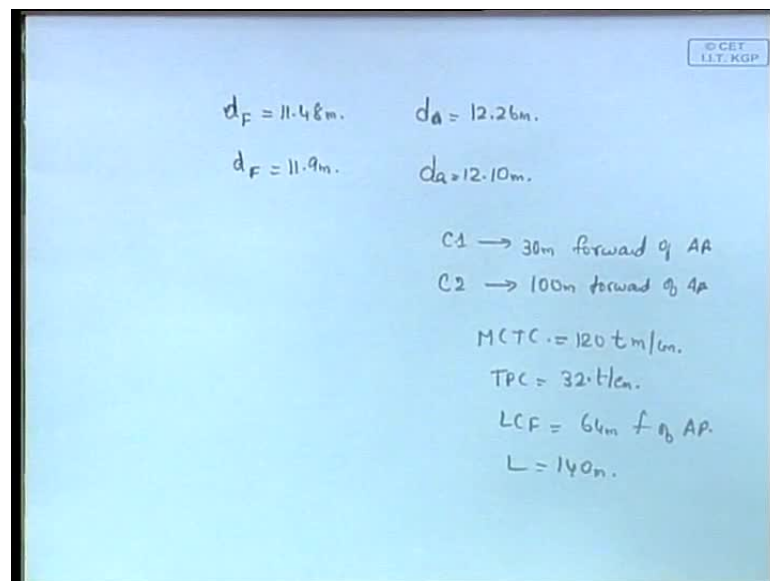 © CET
I.I.T. KGP
dF = 11.48m. da = 12.26m.
dF = 11.9m. da = 12.10m.
C1 → 30m forward of AP
C2 → 100m forward of AP
MCTC. = 120 t m/cm.
TPC = 32. t/cm.
LCF = 64m f of AP.
L = 140m.